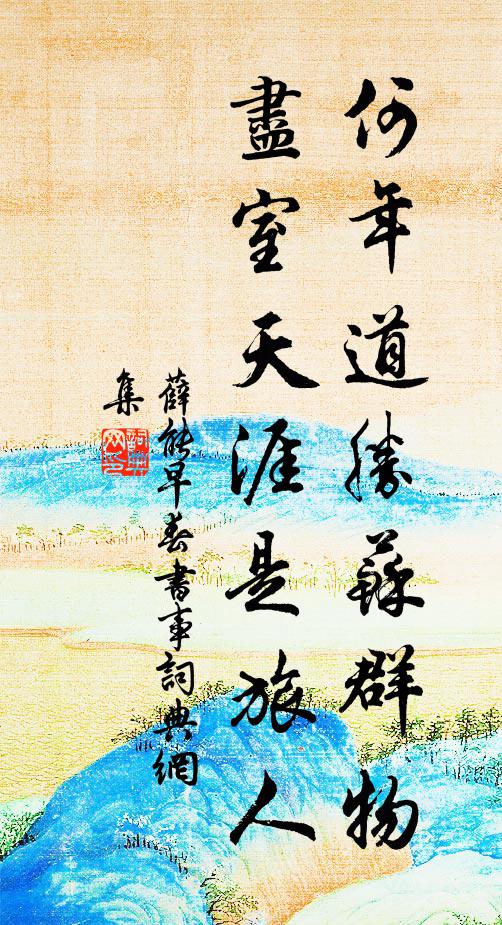 何年道勝蘇群物
盡室天涯是旅人
薛能早春書事詞典網
集